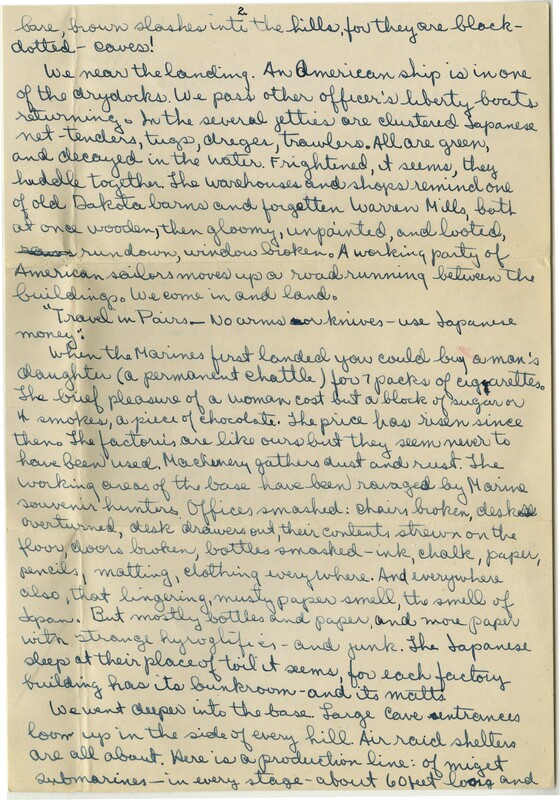 2
bare, brown slashes into the hills, for they are black-
dotted - caves!
We near the landing. An American ship is in one
of the drydocks. We pass other officer's liberty boats
returning. In the several jetties are clustered Japanese
net-tenders, tugs, dreges, trawlers. All are green,
and decayed in the water. Frightened, it seems, they
huddle together. The warehouses and shops remind one
of old Dakota barns and forgetten Warren Mills, both
at once wooden, then gloomy, unpainted, and looted,
rundown, window broken. A working party of
American sailors moves up a road running between the
buildings. We come in and land.
"Travel in Pairs - No arms or knives - use Japanese
money."
When the Marines first landed you could buy a man's
daughter (a permanent chattle) for 7 packs of cigarettes.
The brief pleasure of a woman cost but a block of sugar or
4 smokes, a piece of chocolate. The price has risen since
then. The factoris are like ours but they seem never to
have been used. Machenery gathers dust and rust. The
working areas of ths base have been ravaged by Marine
souvenir hunters. Offices smashed: chairs broken, desks
overturned, desk drawers out, their contents strewn on the
floor, doors broken, bottles smashed - ink, chalk, paper,
pencils, matting, clothing everywhere. And everywhere
also, that lingering musty paper smell, the smell of
Japan. But mostly bottles and paper, and more paper
with strange hyroglifics - and junk. The Japanese
sleep at their place of toil it seems, for each factory
building has its bunkroom - and its matts.
We went deeper into the base. Large cave entrances
loom up in the side of every hill. Air raid shelters
are all about. Here is a production line: of miget
submarines - in every stage - about 60 feet long and